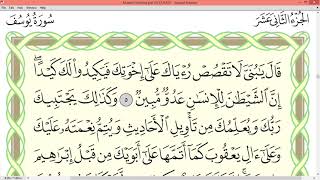 الجُزْءُ الثَّانِي عَشَرَ
سُورَةُ يُوسُفَ
قَالَ يَٰبُنَيَّ لَا تَقْصُصْ رُءْيَاكَ عَلَىٰٓ إِخْوَتِكَ فَيَكِيدُوا۟ لَكَ كَيْدًا
إِنَّ ٱلشَّيْطَٰنَ لِلْإِنسَٰنِ عَدُوٌّ مُّبِينٌ ٥ وَكَذَٰلِكَ يَجْتَبِيكَ
رَبُّكَ وَيُعَلِّمُكَ مِن تَأْوِيلِ ٱلْأَحَادِيثِ وَيُتِمُّ نِعْمَتَهُۥ عَلَيْكَ
وَعَلَىٰٓ ءَالِ يَعْقُوبَ كَمَآ أَتَمَّهَا عَلَىٰٓ أَبَوَيْكَ مِن قَبْلُ إِبْرَٰهِيمَ